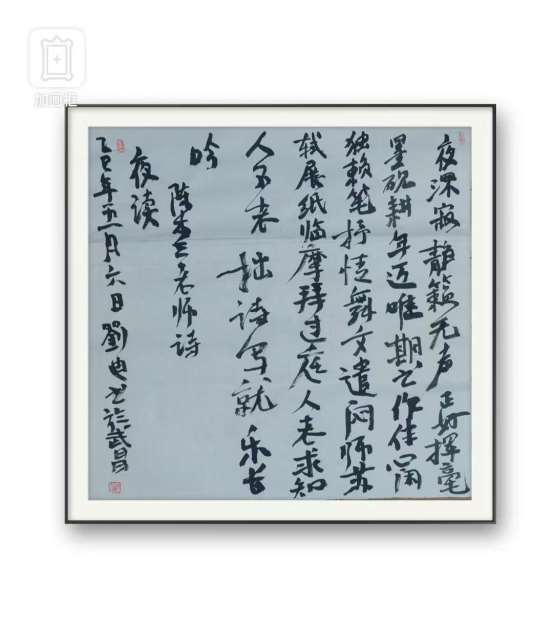 夜深寂静籁无声正好挥毫
墨砚耕年迈唯期书作佳闲
独赖笔抒情舞文遣闷师苏
轼展纸临摩拜过庭人老求知
人不老拙诗写就乐长
吟
陈老三老师诗
夜读
乙巳年五月六日刘也书于武昌
加画框